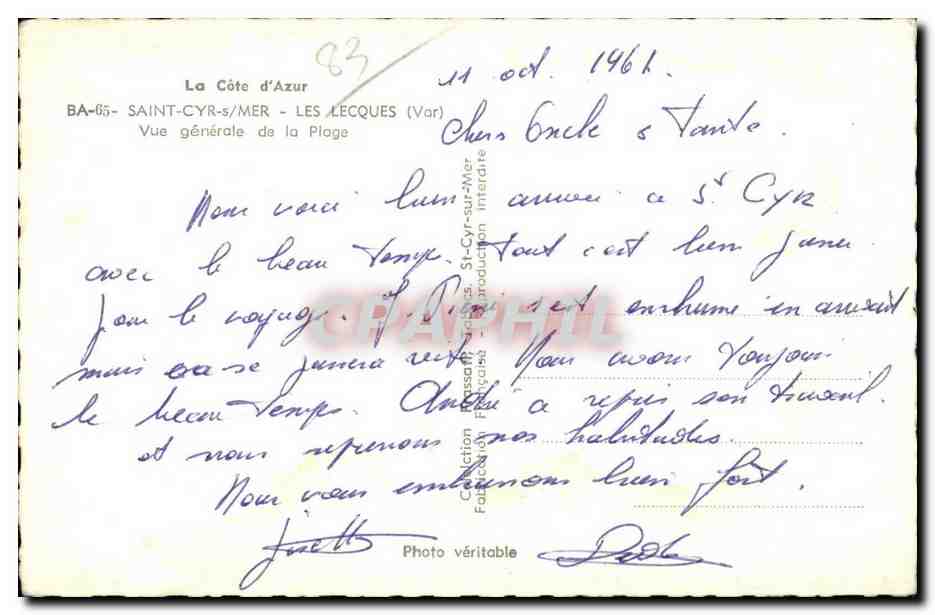 83
La Côte d'Azur
BA-65- SAINT-CYR-s/MER - LES LECQUES (Var)
Vue générale de la Plage
11 oct. 1961.
Chers Oncle & Tante.
Nous voici bien arrivés à St Cyr
avec le beau temps. Tout c'est bien passé
pour le voyage. J. Pierre s'est enrhumé en arrivant
mais ça se passera vite. Nous avons toujours
le beau temps. André a repris son travail.
et nous reprenons nos habitudes.
Nous vous embrassons bien fort.
Collection Tabacs, St-Cyr-sur-Mer
Fabrication Française - Reproduction interdite
Photo véritable
CPAPHIL